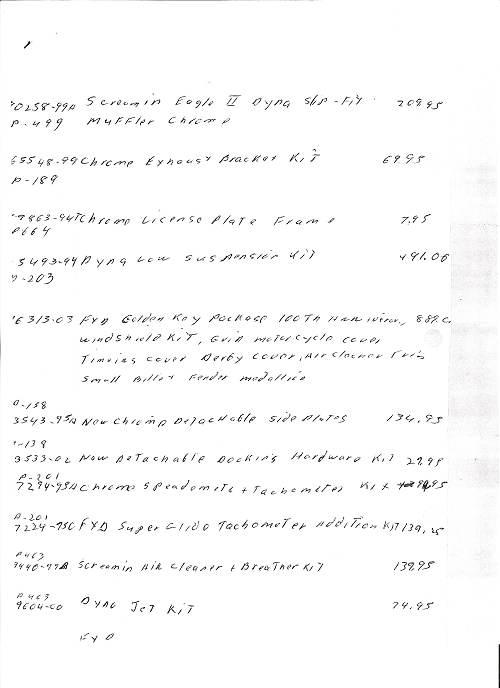 0258-99A Screamin Eagle II Dyna Slip-Fit 209.95
P-499 Muffler Chrome
65548-99 Chrome Exhaust Bracket Kit 69.95
P-189
7863-94T Chrome License Plate Frame 7.95
P664
5493-94 Dyna Low Suspension Kit 491.06
P-203
6313-03 FXD Golden Key Package 100Th
Windshield Kit, Grip Motorcycle cover
Timeing cover Derby cover, Air Cleaner Trim
Small Billet Fender medallion
P-138
3543-95A New Chrome Detachable Side Plates 134.95
-139
3533-02 New Detachable Docking Hardware Kit 29.95
P-201
7294-95A Chrome Speadometer + Tachometer Kit
P-201
7224-95C FXD Super Glide Tachometer Addition Kit
P463
9440-99A Screamin Air Cleaner + Breather Kit 139.95
P463
9604-00 Dyno Jet Kit 74.95
FXD